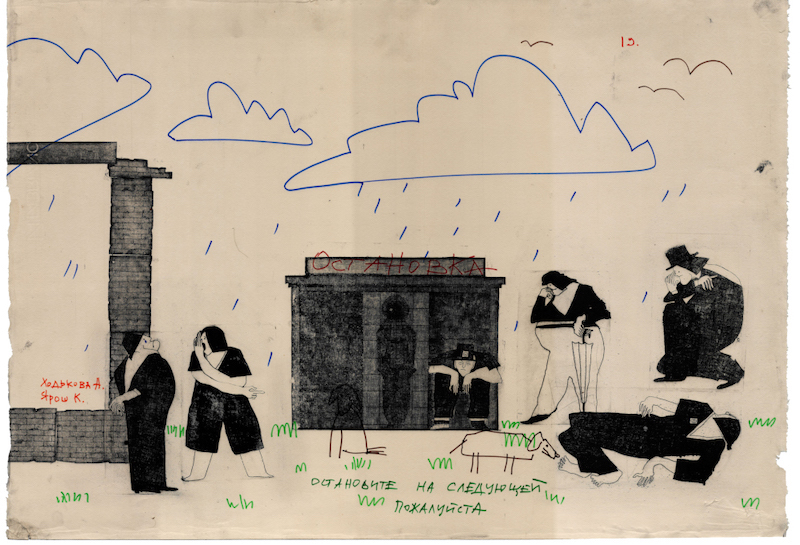 13.
ОСТАНОВКА
ХОДЬКОВА А.
ЯРОШ К.
ОСТАНОВИТЕ НА СЛЕДУЮЩЕЙ
ПОЖАЛУЙСТА